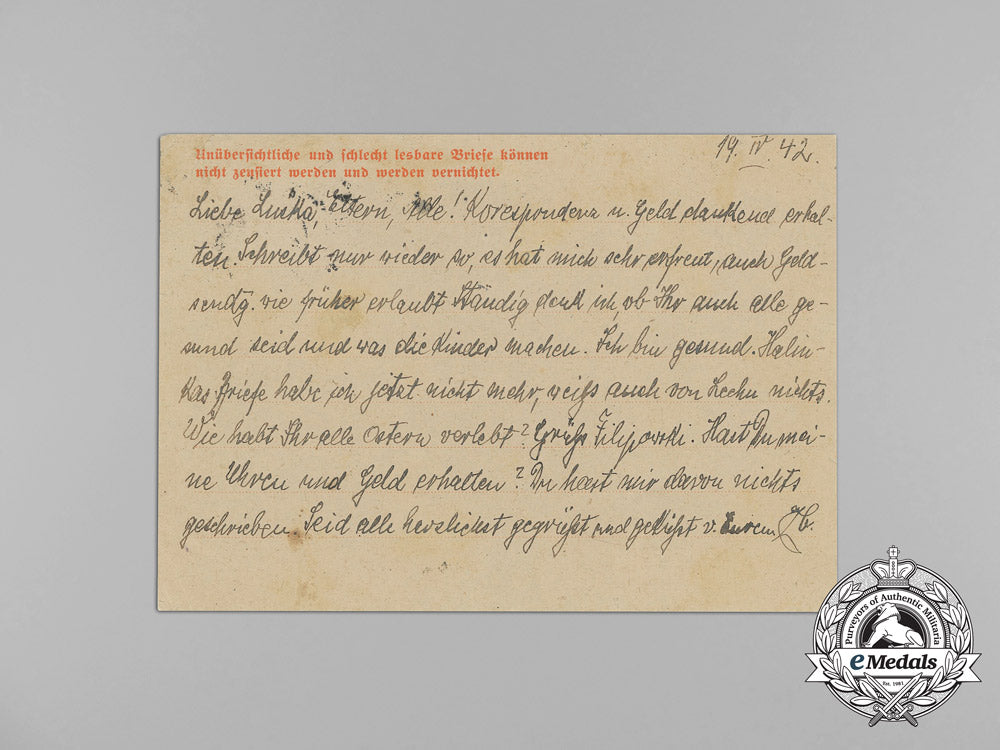 19. IV. 42.
Unübersichtliche und schlecht lesbare Briefe können
nicht zensiert werden und werden vernichtet.
Liebe Luśka, Eltern, Alle! Korespondenz u. Geld dankend erhal-
ten. Schreibt nur wieder so, es hat mich sehr erfreut, auch Geld-
sendg. wie früher erlaubt Ständig denk ich, ob Ihr auch alle ge-
sund seid und was die Kinder machen. Ich bin gesund. Halin-
kas Briefe habe ich jetzt nicht mehr, weiß auch von Lechu nichts.
Wie habt Ihr alle Ostern verlebt? Grüße Filipowski. Hast Du mei-
ne Uhren und Geld erhalten? Du hast mir davon nichts
geschrieben. Seid alle herzlichst gegrüßt und geküßt v. Eurem
Purveyors of Authentic Militaria
eMedals
Est. 1981